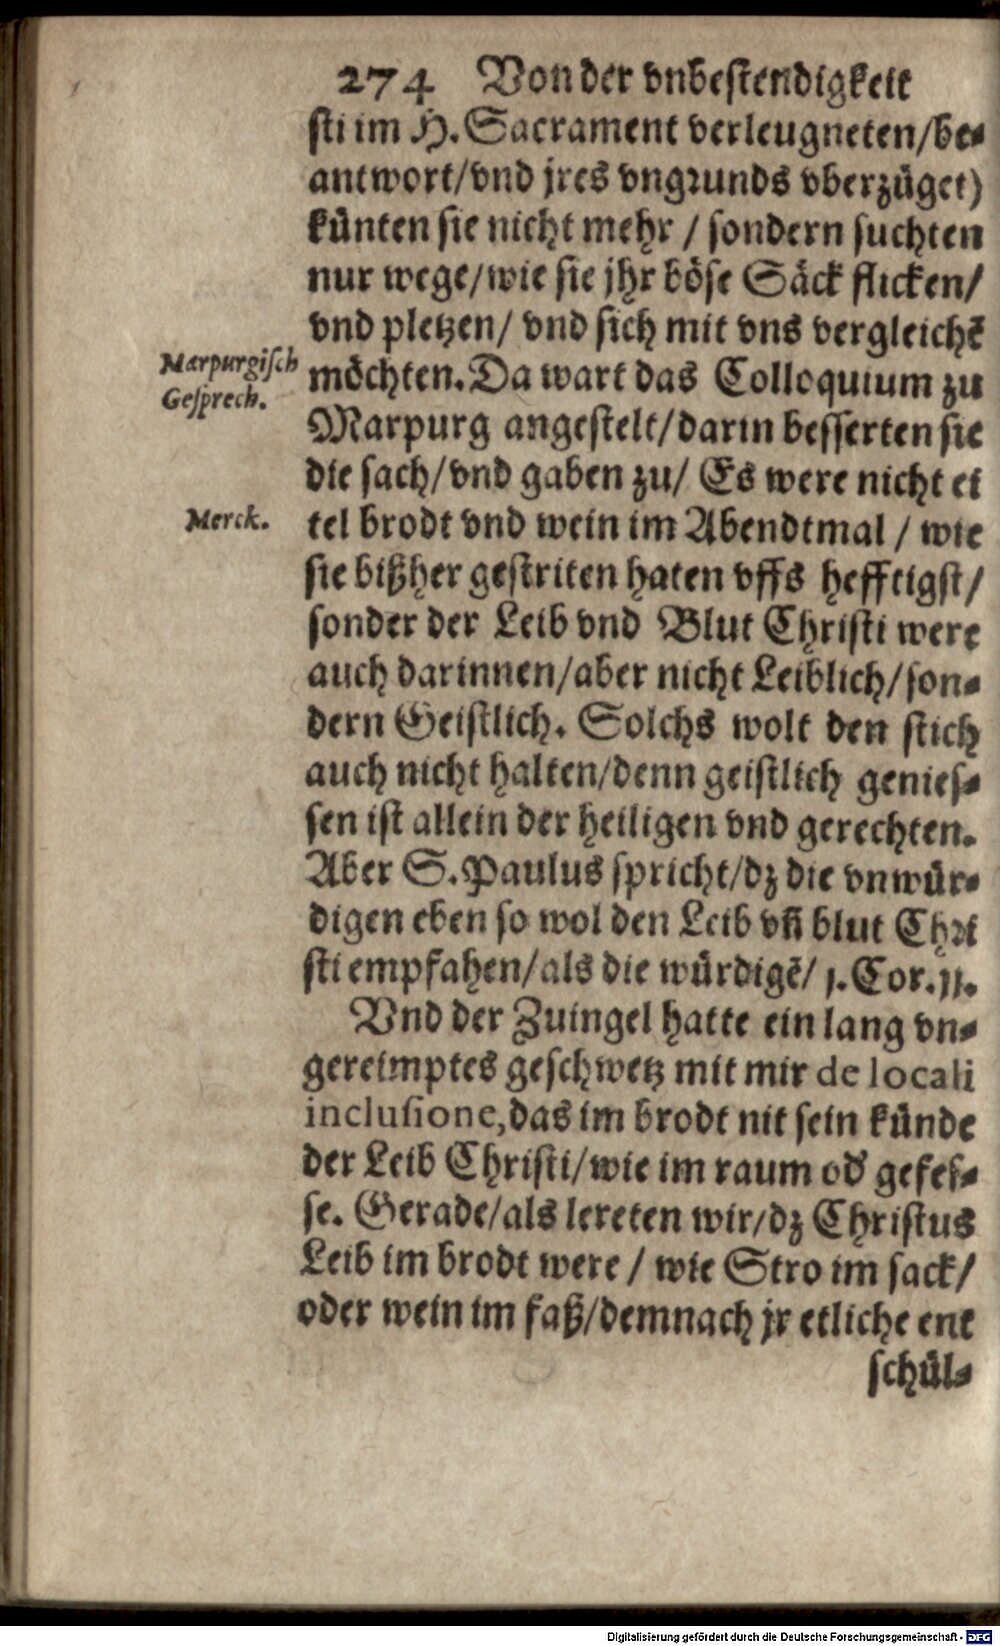 274 Von der vnbestendigkeit
sti im H. Sacrament verleugneten/be⸗
antwort/vnd jres vngrunds vberzüget)
künten sie nicht mehr / sondern suchten
nur wege/wie sie jhr böse Säck flicken/
vnd pletzen/ vnd sich mit vns vergleichē
Marpurgiſch
Geſprech.
möchten. Da wart das Colloquium zu
Marpurg angestelt/darin besserten sie
die sach/vnd gaben zu/ Es were nicht ei
Merck.
tel brodt vnd wein im Abendtmal / wie
sie bißher gestriten haten vffs hefftigst/
sonder der Leib vnd Blut Christi were
auch darinnen/aber nicht Leiblich/son⸗
dern Geistlich. Solchs wolt den stich
auch nicht halten/denn geistlich genies⸗
sen ist allein der heiligen vnd gerechten.
Aber S. Paulus spricht/dz die vnwür⸗
digen eben so wol den Leib vñ blut Chri
sti empfahen/als die würdigē/ 1. Cor. 11.
Vnd der Zuingel hatte ein lang vn⸗
gereimptes geschwetz mit mir de locali
incluſione, das im brodt nit sein künde
der Leib Christi/wie im raum od' gefes⸗
se. Gerade/als lereten wir/dz Christus
Leib im brodt were / wie Stro im sack/
oder wein im faß/demnach jr etliche ent
schül⸗
Digitalisierung gefördert durch die Deutsche Forschungsgemeinschaft - DFG